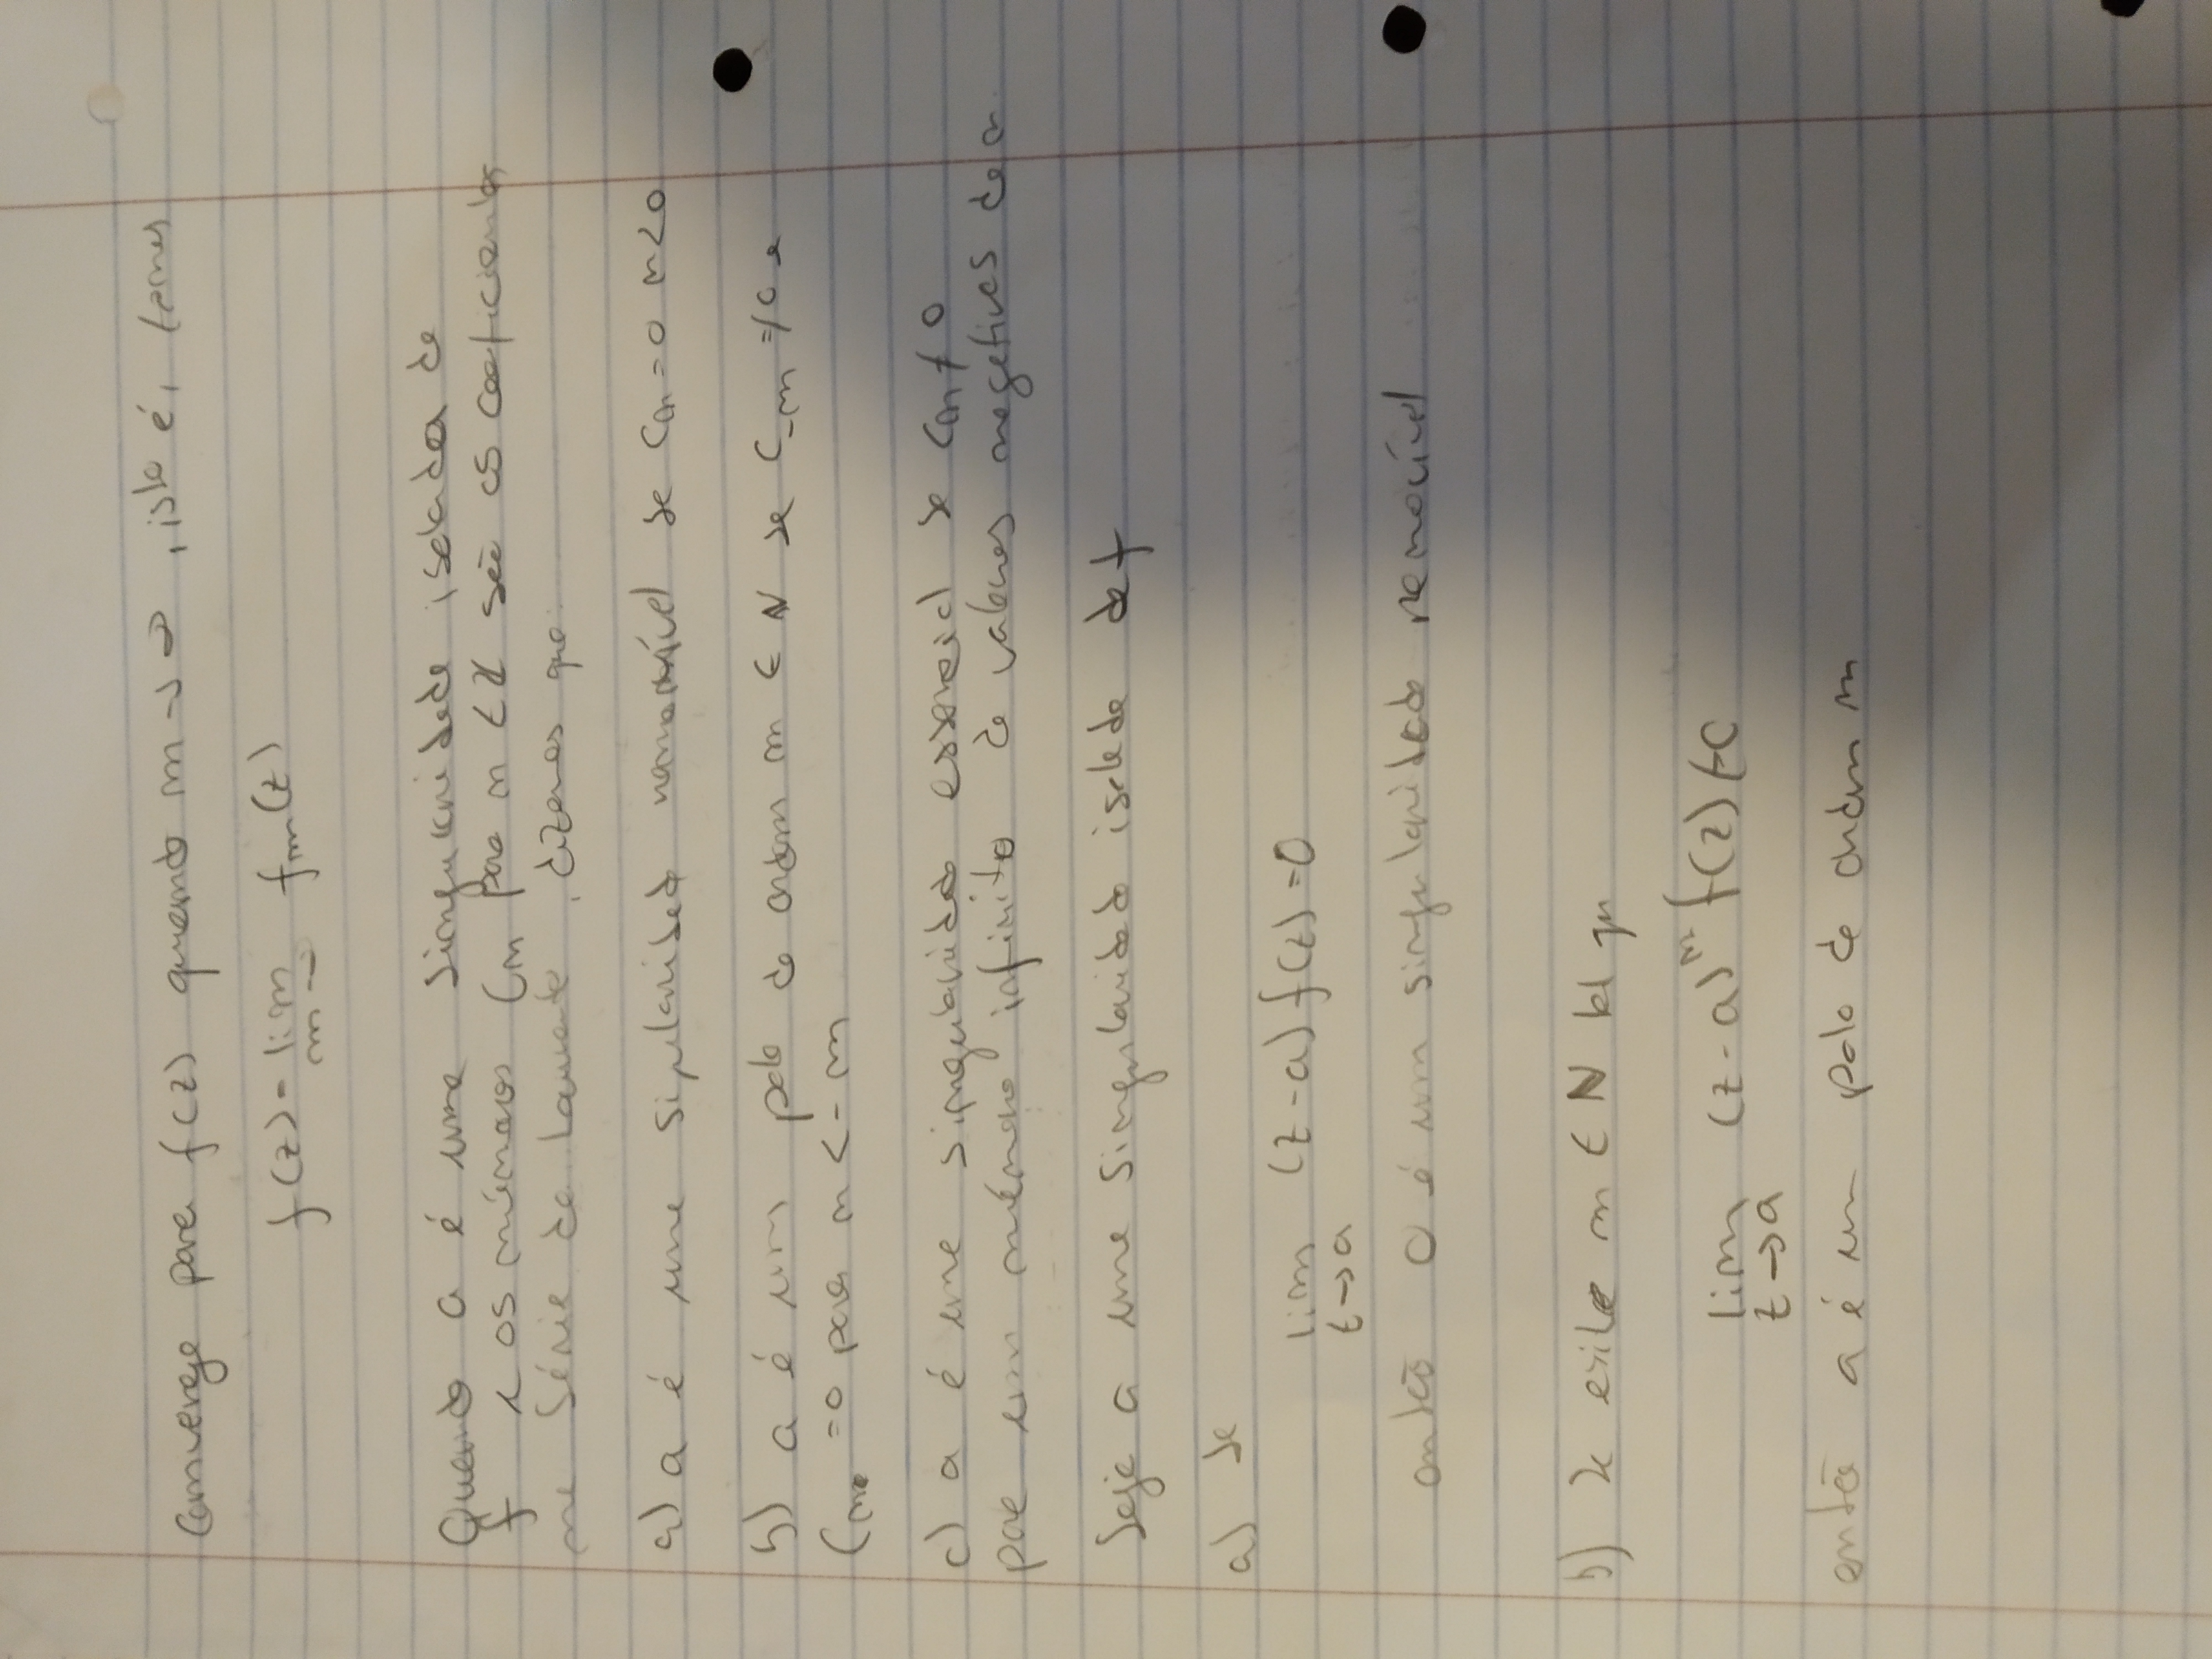 Converge para f(z) quando m → ∞, isto é, temos
f(z) = lim fm(z)
m→∞
Quando a é uma singularidade isolada de
f e os números Cn para n < Z são os coeficientes
na série de Laurent, dizemos que
a) a é uma singularidade removível se Cn = 0 n<0
b) a é um polo de ordem m ∈ N se C-m ≠ 0 e
Cn = 0 para n < -m
c) a é uma singularidade essencial se Cn ≠ 0
para um número infinito de valores negativos de n
Seja a uma singularidade isolada de f
a) se
lim (z-a) f(z) = 0
z→a
então a é um singularidade removível
b) se existe m ∈ N tal que
lim (z-a)^m f(z) ≠ 0
z→a
então a é um polo de ordem m